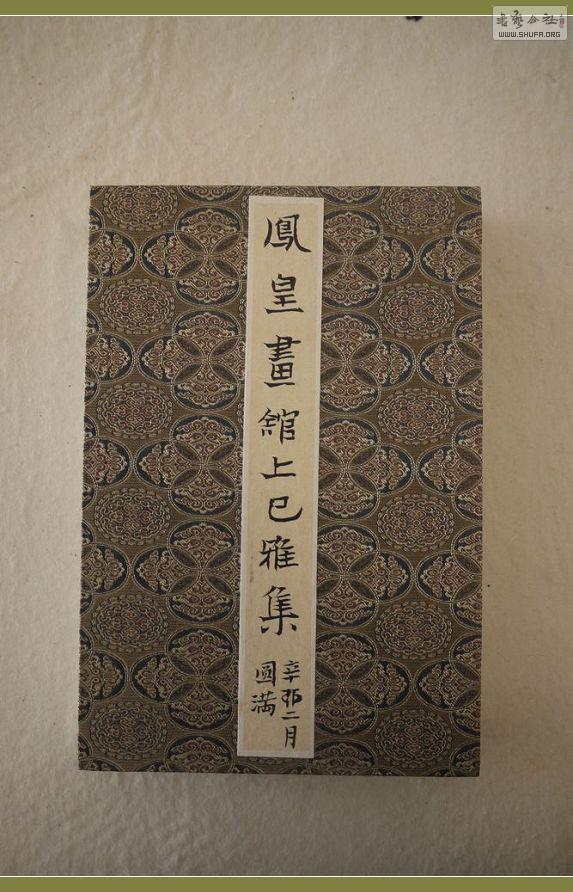 鳳皇畫館上巳雅集
辛卯二月
圓滿
书艺公社
WWW.SHUFA.ORG